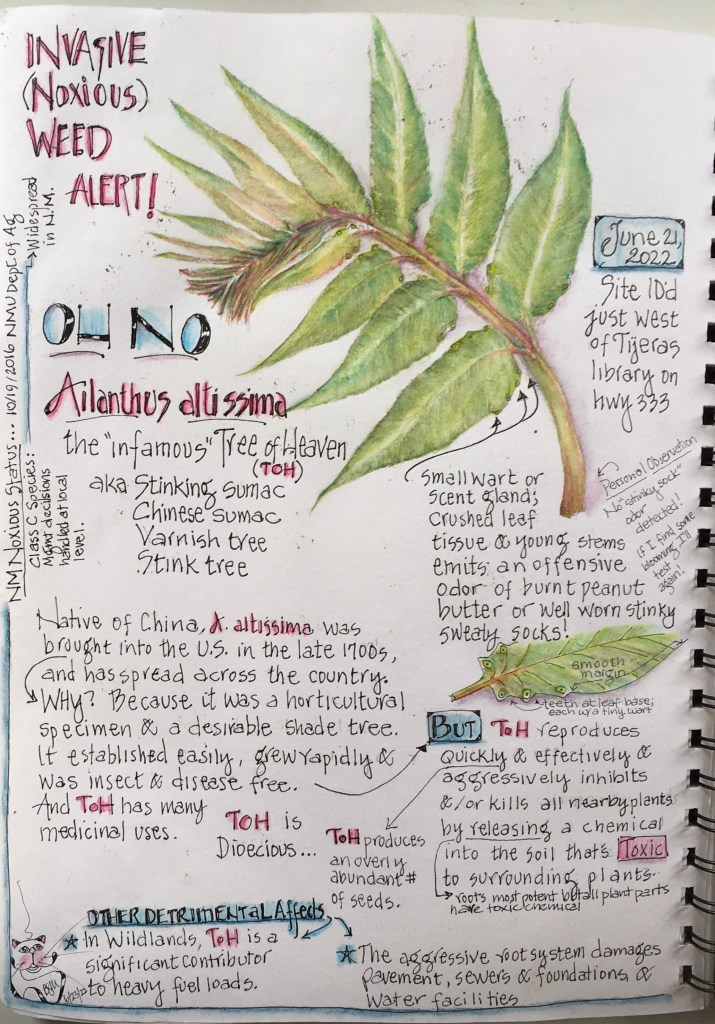 INVASIVE
(NOXIOUS)
WEED
ALERT!
NM Noxious Status... 10/19/2016 NMU Dept of Ag
→Widespread
in N.M.
Class C Species:
Mgmt decisions
handled at local
level.
OH NO
Ailanthus altissima
the "infamous" Tree of Heaven
(TOH)
aka Stinking sumac
Chinese sumac
Varnish tree
Stink tree
June 21,
2022
Site ID'd
just west
of Tijeras
library on
hwy 333
Personal Observation
No "stinky sock"
odor
detected!
If I find some
blooming, I'll
test
again!
Small wart or
scent gland;
crushed leaf
tissue & young stems
emits an offensive
odor of burnt peanut
butter or well worn stinky
sweaty socks!
smooth
margin
teeth at leaf base;
each w/a tiny wart
Native of China, A. altissima was
brought into the U.S. in the late 1700s,
and has spread across the country.
WHY? Because it was a horticultural
specimen & a desirable shade tree.
It established easily, grew rapidly &
was insect & disease free.
And TOH has many
medicinal uses.
TOH is
Dioecious...
BUT TOH reproduces
quickly & effectively &
aggressively inhibits
&/or kills all nearby plants
by releasing a chemical
into the soil that's Toxic
to surrounding plants.
→ roots most potent but all plant parts
have toxic chemical
TOH produces
an overly
abundant #
of seeds.
OTHER DETRIMENTAL Affects
★ In Wildlands, TOH is a
significant contributor
to heavy fuel loads.
★ The aggressive root system damages
pavement, sewers & foundations &
water facilities
6/23/22